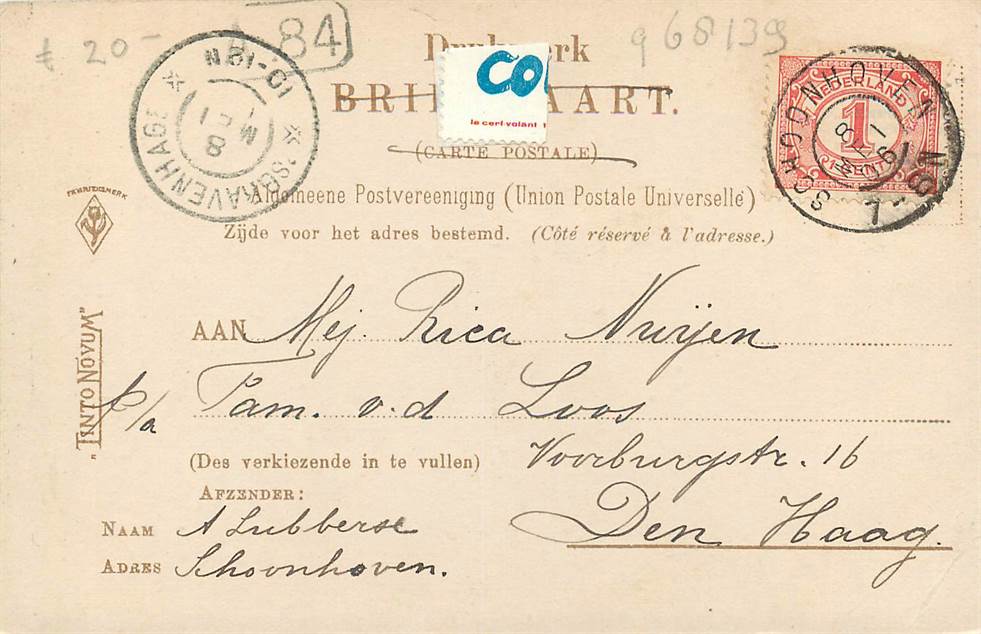 £ 20-
84
968139
Drukwerk
BRIEFKAART.
CO
le cerf-volant
(CARTE POSTALE)
NEDERLAND
1
CENT
SCHOONHOVEN
7-8N
'SGRAVENHAGE
10-12N
8
Algemeene Postvereeniging (Union Postale Universelle)
Zijde voor het adres bestemd. (Côté réservé à l'adresse.)
FABRIEKSMERK
"TINTO NOVUM"
AAN Mej. Rica Nuijen
p/a Fam. v.d Loos
(Des verkiezende in te vullen) Voorburgstr. 16
AFZENDER:
Den Haag.
NAAM A Lubberse
ADRES Schoonhoven.